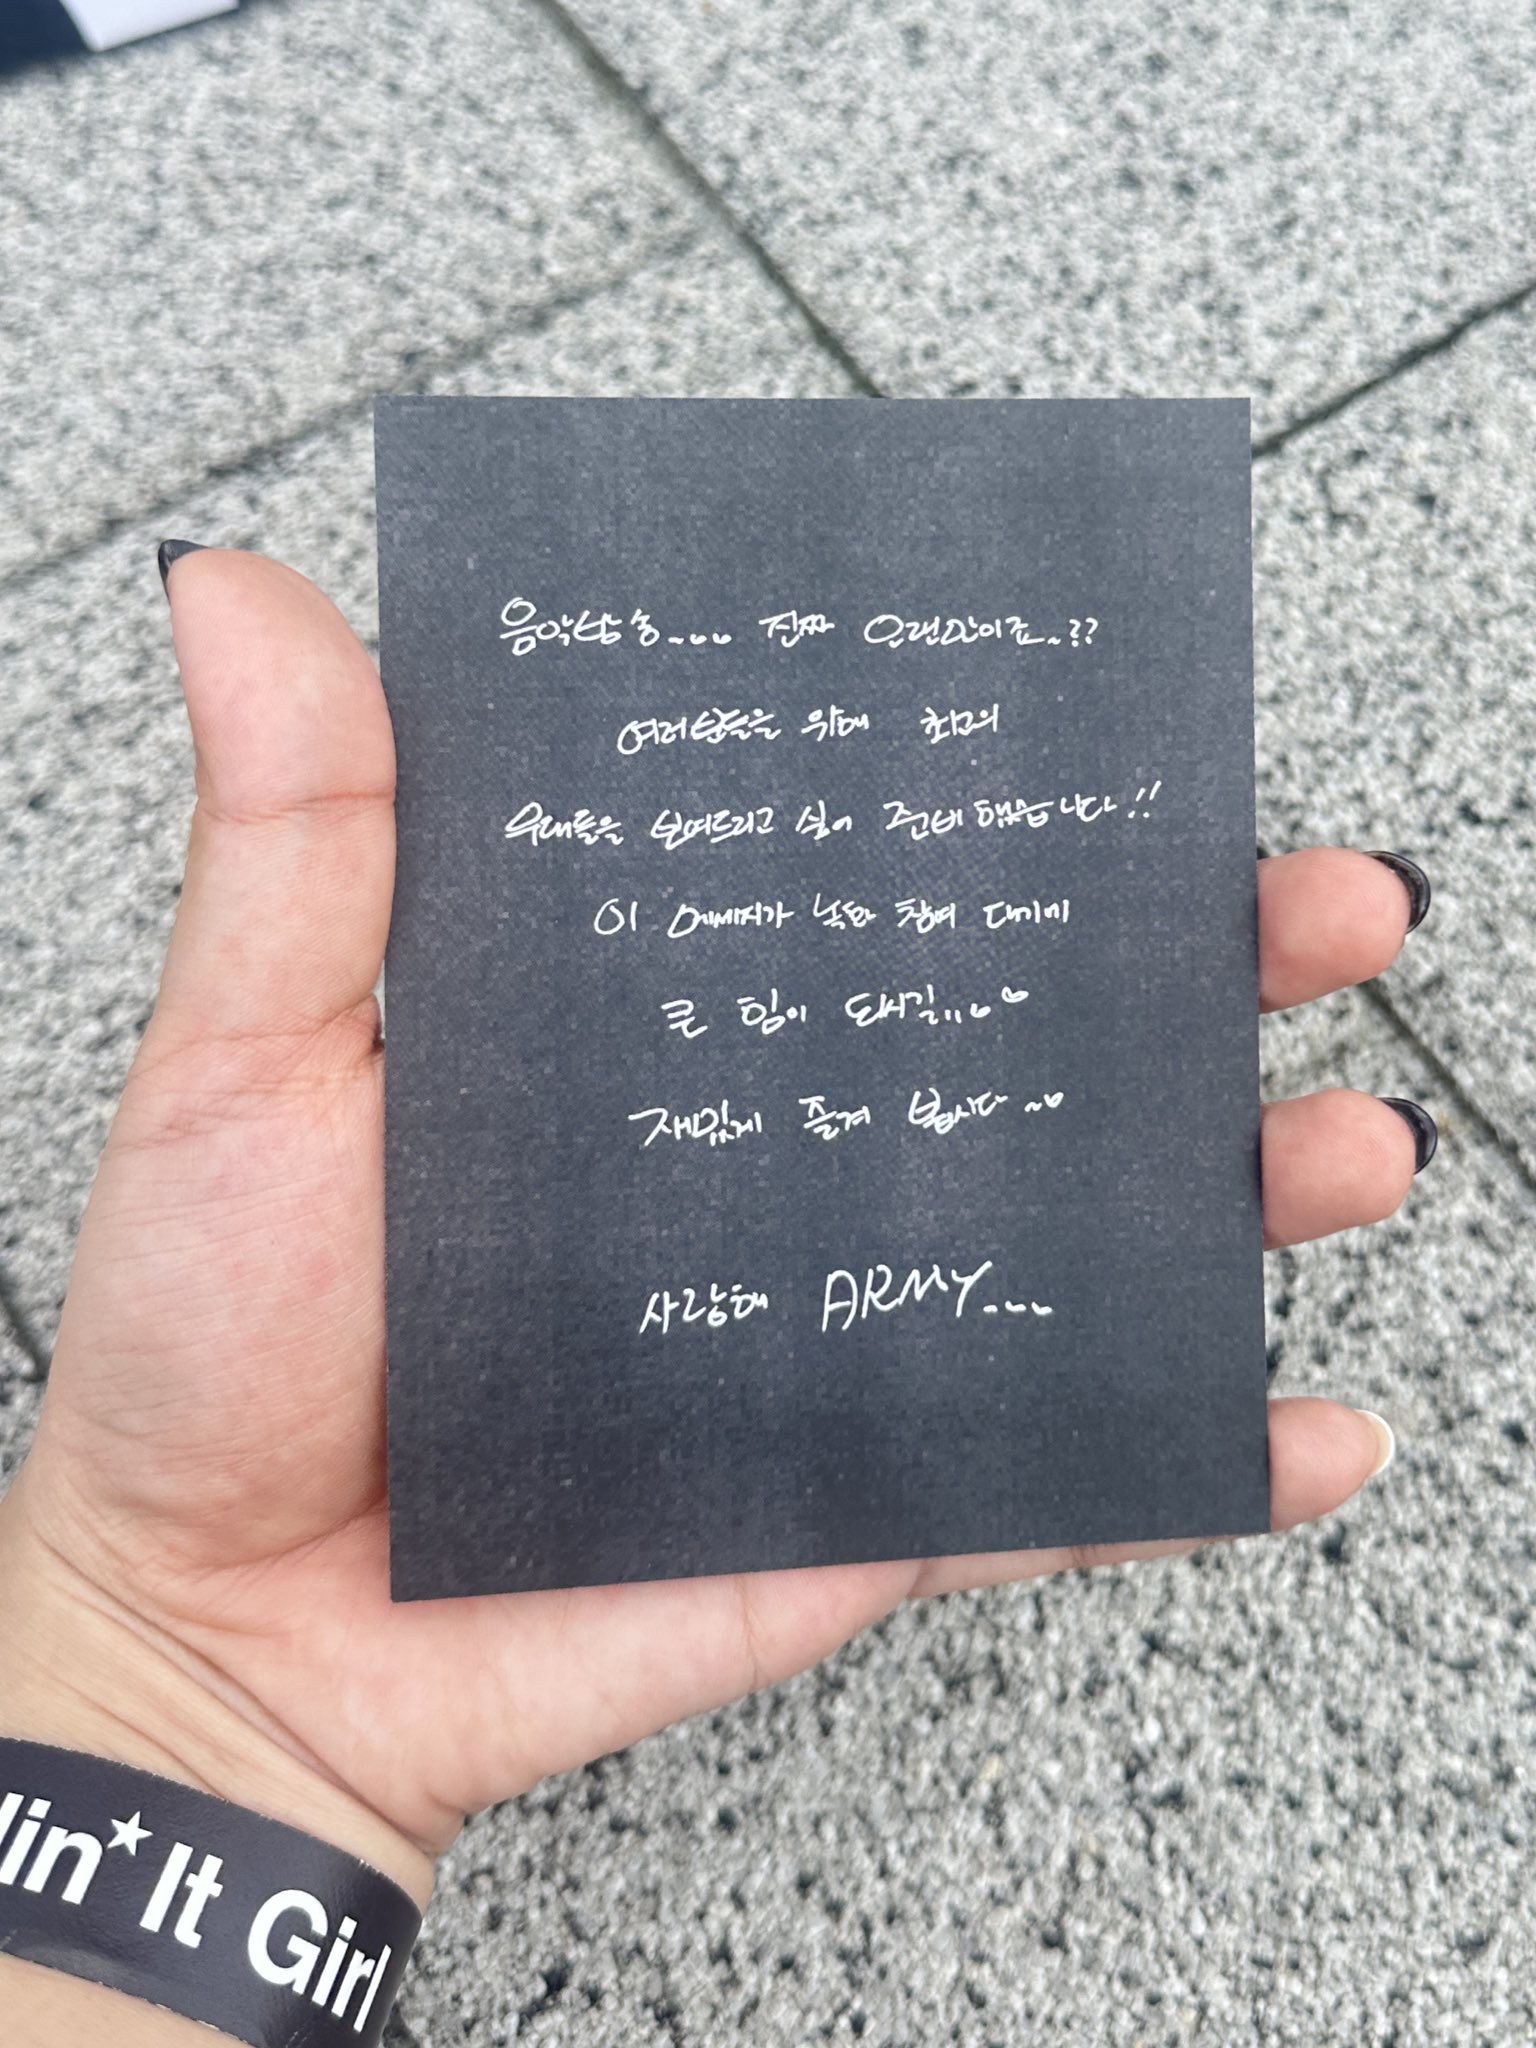 음악방송~.. 진짜 오랜만이죠~??
여러분들을 위해 최고의
무대들을 보여드리고 싶어 준비했습니다!!
이 메세지가 녹화 참여 대기에
큰 힘이 되시길,,..
재밌게 즐겨 봅시다~
사랑해 ARMY...
lin★It Girl